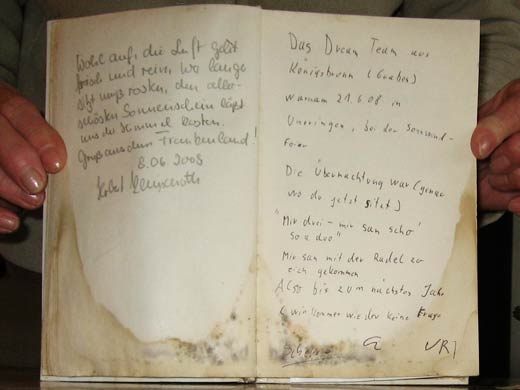 Wohl auf, die Luft geht
frisch und rein, wer lange
sitzt muß rosten, den aller-
schönsten Sonnenschein läßt
uns der Himmel kosten.
Gruß aus dem Frankenland!
8.06.2008
Das Dream Team aus
Königsbrunn (Graben)
war am 21.6.08 in
bei der Sonnwend-
Feier
Die Übernachtung war (genau
wo du jetzt sitzt)
"Mir drei - mir san scho
so a dro"
Mir san mit der Radel zu
eich gekommen
Also bis zum nächstes Jahr
(wir kommen wieder keine Frage